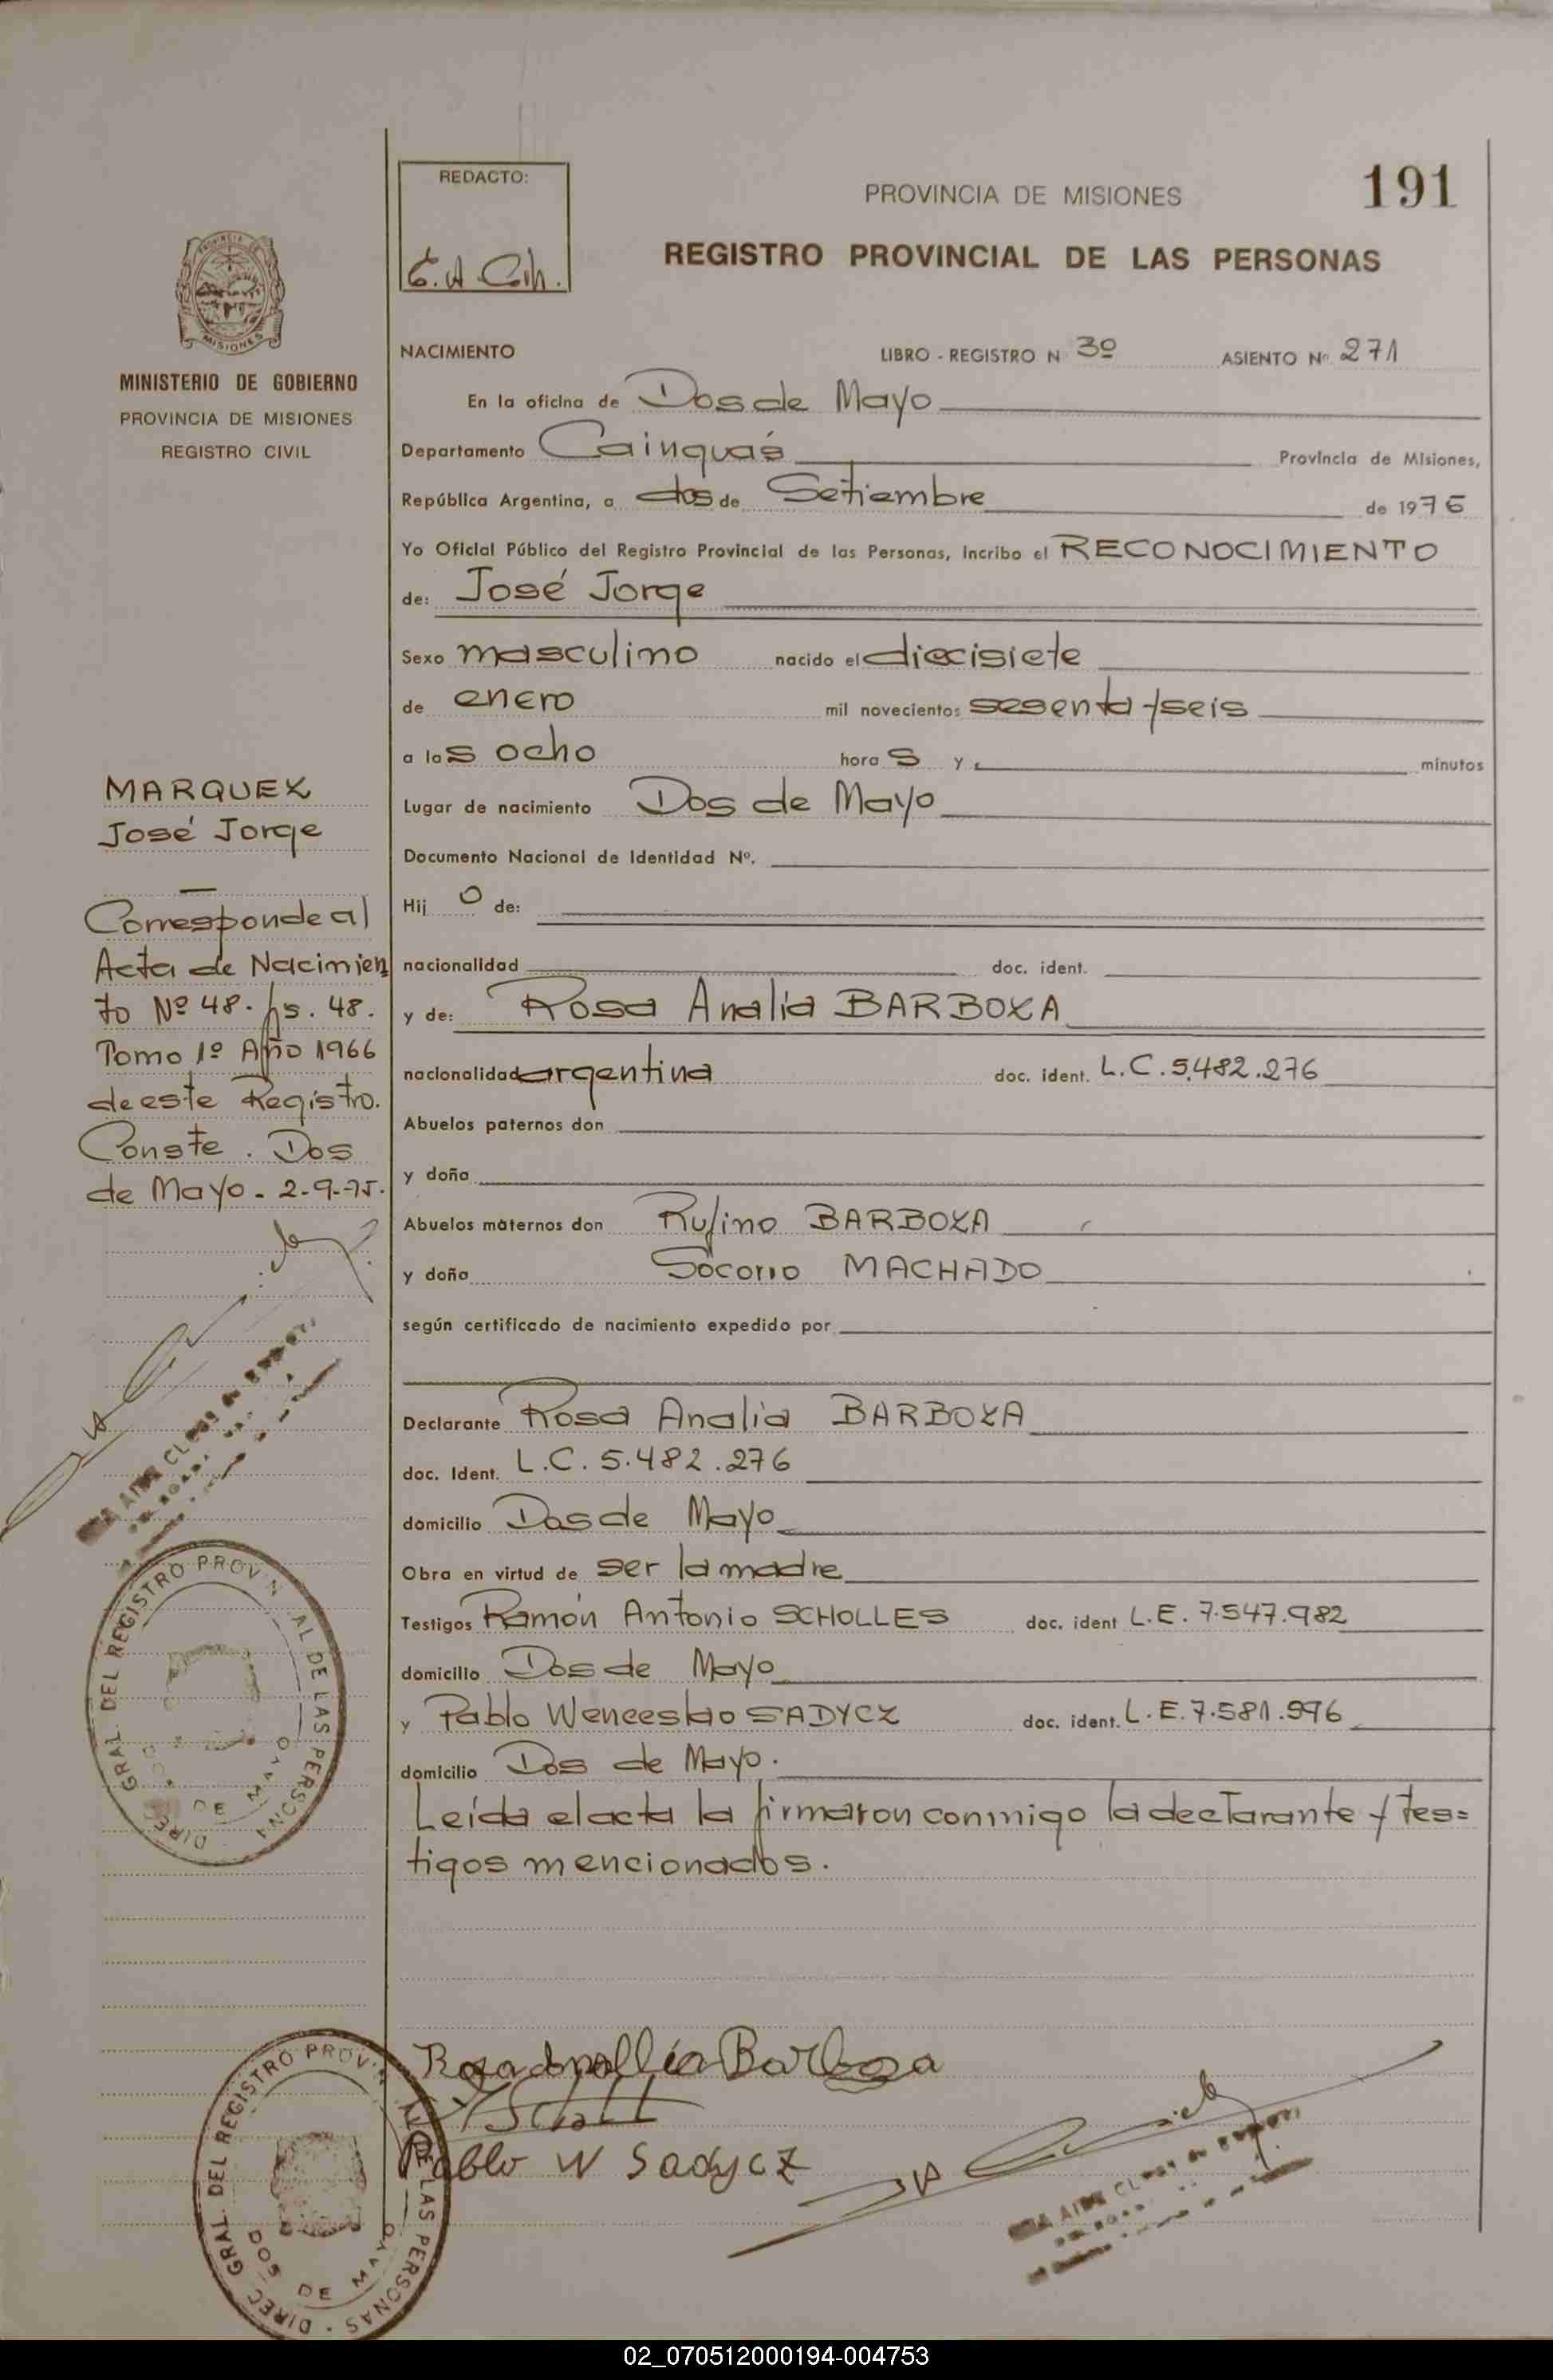 191
REDACTO:
PROVINCIA DE MISIONES
REGISTRO PROVINCIAL DE LAS PERSONAS
MISIONES
MINISTERIO DE GOBIERNO
PROVINCIA DE MISIONES
REGISTRO CIVIL
NACIMIENTO LIBRO - REGISTRO N 3º ASIENTO Nº 271
En la oficina de Dos de Mayo
Departamento Cainguás Provincia de Misiones,
República Argentina, a dos de Setiembre de 1975
Yo Oficial Público del Registro Provincial de las Personas, incribo el RECONOCIMIENTO
de: José Jorge
Sexo masculino nacido el diecisiete
de enero mil novecientos sesenta y seis
a las ocho horas y minutos
Lugar de nacimiento Dos de Mayo
Documento Nacional de Identidad Nº.
Hijo de:
nacionalidad doc. ident.
y de: Rosa Analia BARBOZA
nacionalidad argentina doc. ident. L.C. 5.482.276
Abuelos paternos don
y doña
Abuelos maternos don Rufino BARBOZA
y doña Socorro MACHADO
según certificado de nacimiento expedido por
Declarante Rosa Analia BARBOZA
doc. Ident. L.C. 5.482.276
domicilio Dos de Mayo
Obra en virtud de ser la madre
Testigos Ramón Antonio SCHOLLES doc. ident L.E. 7.547.982
domicilio Dos de Mayo
y Pablo Wenceslao SADYCZ doc. ident. L.E. 7.581.996
domicilio Dos de Mayo.
Leída el acta la firmaron conmigo la declarante y tes=
tigos mencionados.
MARQUEZ
José Jorge
Corresponde al
Acta de Nacimien
to Nº 48. fs. 48.
Tomo 1º Año 1966
de este Registro.
Conste. Dos
de Mayo - 2-9-75.
DIREC GRAL DEL REGISTRO PROVIN AL DE LAS PERSONA
DOS DE MAYO
Rosa Anallia Barboza
Pablo W Sadycz
DIREC GRAL DEL REGISTRO PROVIN AL DE LAS PERSONAS
DOS DE MAYO
02_070512000194-004753